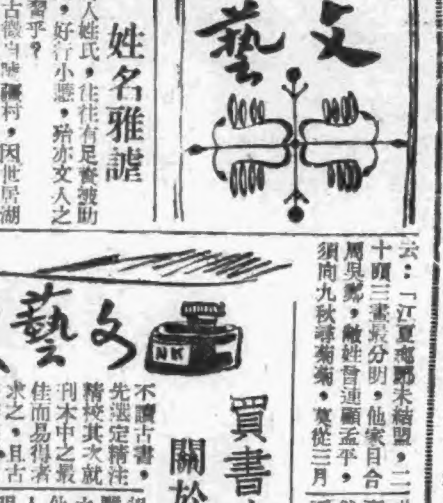 文藝
姓名雅謔
人姓氏，往往有足資談助
，好行小慧，殆亦文人之
習乎？
古微自號彊村，因世居湖
云：「江夏
十頭三畫最分明，他家自合
周吳鄭，敝姓曾連顧孟平，
須向九秋尋菊菊，莫從三月
文藝
INK
買書
關於
不讀古書，
先選定精注
精校其次就
刊本中之最
佳而易得者
求之，且古